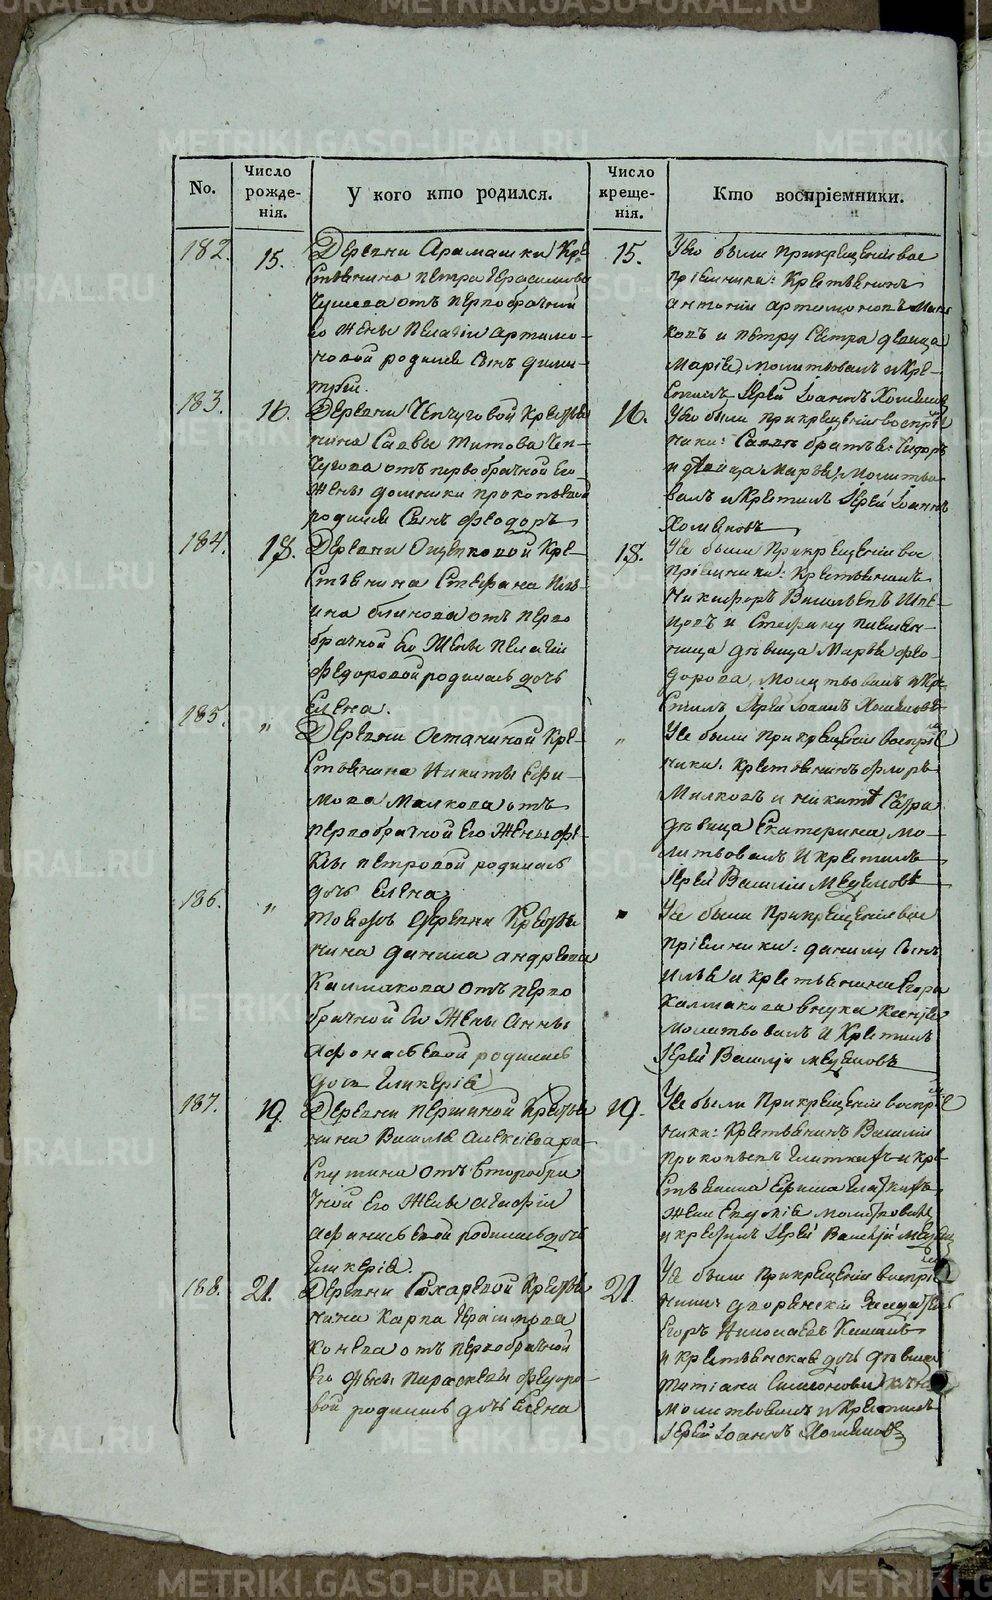 METRIKI.GASO-URAL.RU
No.
Число рожде-
нія.
У кого кто родился.
Число креще-
нія.
Кто воспріемники.
182.
15.
Деревни Арамашки Кре
стьянина Петра Герасимова
от первобрачной
его жены Пелагіи Артамо-
новой родился сынъ Дими-
трій.
15.
У его были при крещеніи вос
пріемники: Крестьянинъ
Антоній Артамоновъ
ковъ и Петру сестра девица
Марія, молитвовалъ и кре-
стилъ Іерей Іоаннъ Хомяковъ
183.
16.
Деревни Чепчуговой Крестья
нина Саввы Титова Чеп-
чугова отъ первобрачной его
жены Домники Прокопьевой
родился сынъ Феодоръ
16.
У его были при крещеніи воспріем
ники: Саввы братъ
и девица Марья, молитво
валъ и крестилъ Іерей Іоаннъ
Хомяковъ
184.
18.
Деревни Ощепковой Кре-
стьянина Стефана
Блинова отъ перво
брачной его жены Пелагіи
Федоровой родилась дочь
Елена.
18.
У ее были при крещеніи вос
пріемники: крестьянинъ
Никифоръ Васильевъ Шве-
цовъ и Стефану племян-
ница девица Марья Фео-
дорова, молитвовалъ и кре
стилъ Іерей Іоаннъ Хомяковъ
185.
"
Деревни Останиной Кре-
стьянина Никиты Ефи-
мова Малкова отъ
первобрачной его жены Фе-
клы Петровой родилась
дочь Елена
"
У ее были при крещеніи воспріем
ники: крестьянинъ Флоръ
Малковъ и Никиты сестра
девица Екатерина, мо-
литвовалъ и крестилъ
Іерей Василій
186.
"
Тоежъ деревни Крестья
нина Данила Андреева
Калмакова отъ перво
брачной его жены Анны
Афонасьевой родилась
дочь Гликерія
"
У ее были при крещеніи вос
пріемники: Данилу сынъ
Илья и крестьянина Егора
Калмакова внука Ксенія
молитвовалъ и крестилъ
Іерей Василій
187.
19.
Деревни Першиной Крестья
нина Василья Алексеева Ра
спутина отъ второбра
чной его жены Агафіи
Афанасьевой родилась дочь
Гликерія.
19.
У ее были при крещеніи воспріем
ники: Крестьянинъ Василій
Прокопьевъ Глаткихъ и кре
стьянина Ефима Глаткихъ
жена Евдокія молитвовалъ
и крестилъ Іерей Василій
188.
21.
Деревни Гохаревой Крестья
нина Карпа Герасимова
Конева отъ первобрачной
его жены Параскевы Федоро-
вой родилась дочь Елена
21.
У ее были при крещеніи воспріем
ники Дворянскій Заседатель
Егоръ Николаевъ
и крестьянская дочь девица
Татіана Симеонова
молитвовалъ и крестилъ
Іерей Іоаннъ Хомяковъ